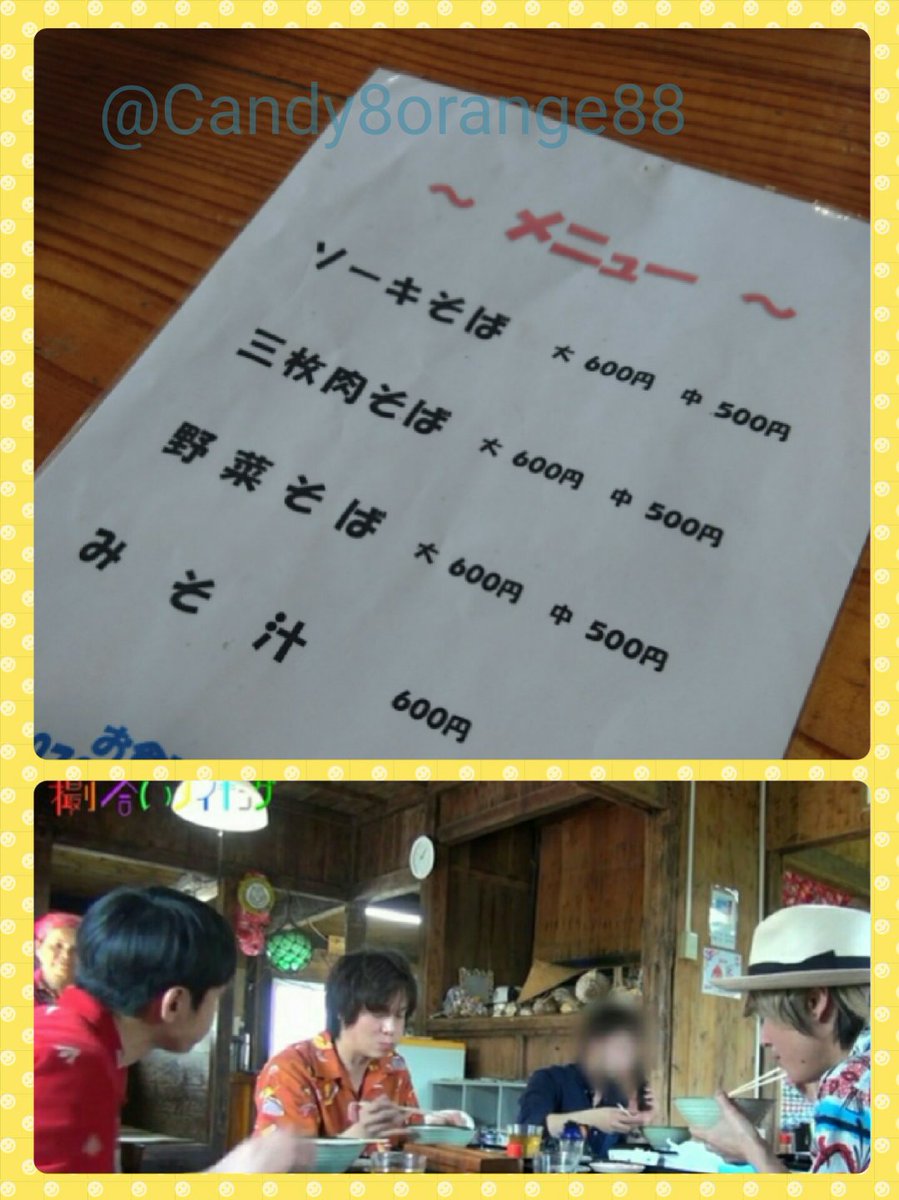 @Candy8orange88
～ メニュー ～
ソーキそば 大 600円 中 500円
三枚肉そば 大 600円 中 500円
野菜そば 大 600円 中 500円
みそ汁 600円
撮り合いワイキング